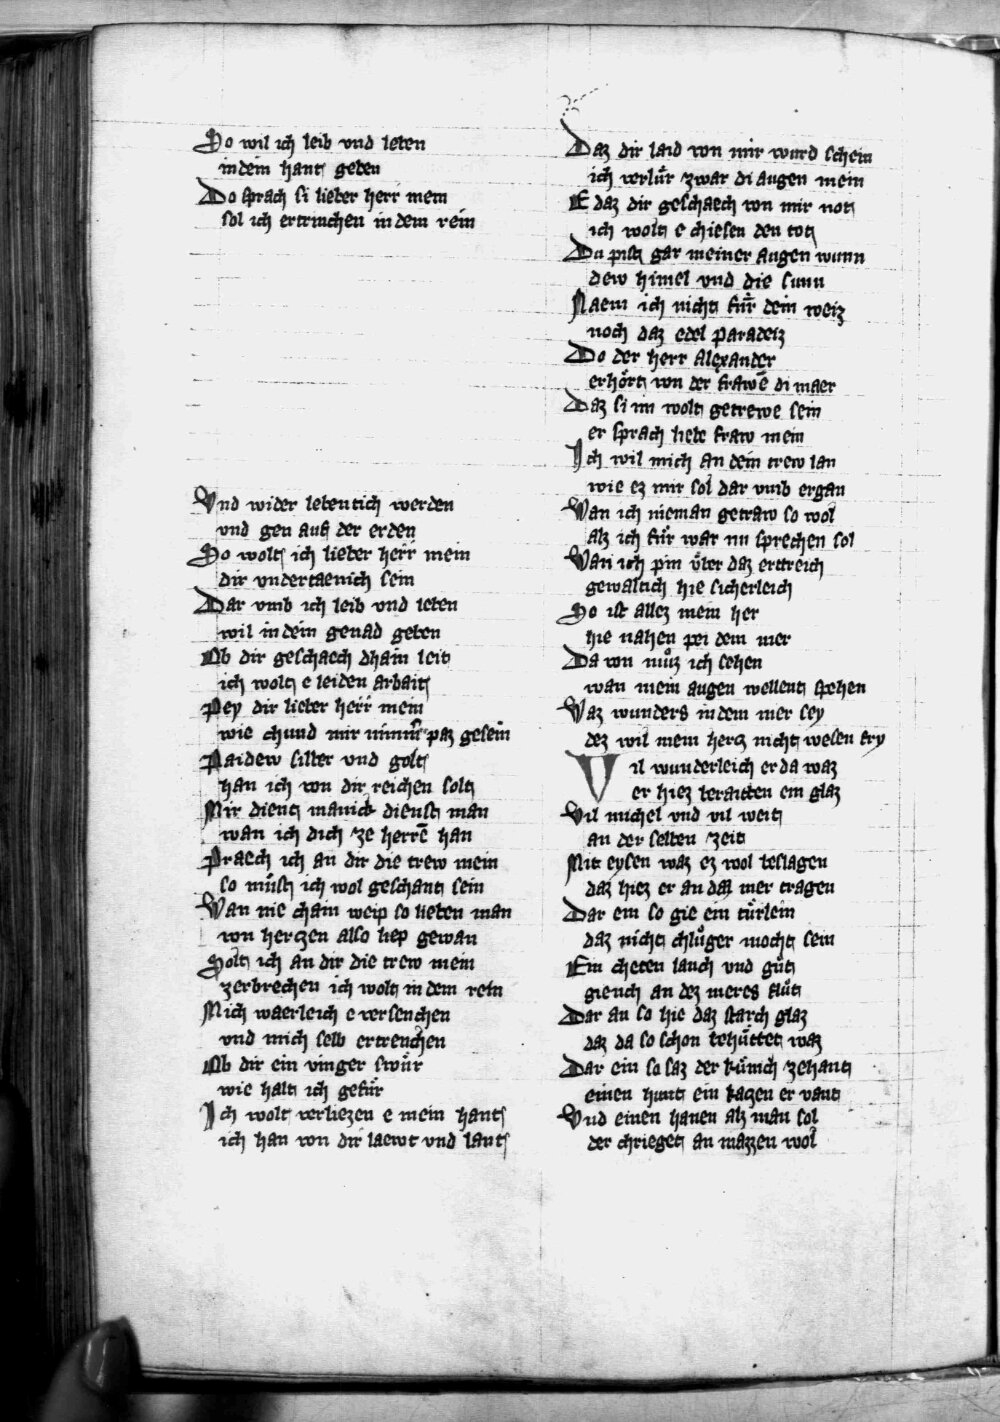 So wil ich leib vnd leben
in dein hant geben
Do sprach si lieber herr mein
sol ich ertrinchen in dem rein
Vnd wider lebentich werden
vnd gen auf der erden
So wolt ich lieber herr mein
dir vndertaenich sein
Dar vmb ich leib vnd leben
wil in dein genad geben
Ob dir geschaech dhain leit
ich wolt e leiden arbait
Pey dir lieber herr mein
wie chund mir nimmer paz gesein
Paidew silber vnd golt
han ich von dir reichen solt
Mir dient manick dienst man
wan ich dich ze herrē han
Praech ich an dir die trew mein
so müst ich wol geschant sein
Wan nie chain weip so lieben man
von herczen also liep gewan
Solt ich an dir die trew mein
zerbrechen ich wolt in dem rein
Mich waerleich e versenchen
vnd mich selb ertrenchen
Ob dir ein vinger swür
wie halt ich gefür
Ich wolt verliezen e mein hant
ich han von dir laewt vnd lant
Daz dir laid von mir wurd schein
ich verlür zwar di augen mein
E daz dir geschaech von mir not
ich wolt e chiesen den tot
Du pist gar meiner augen wunn
dew himel vnd die sunn
Naem ich nicht für dein weiz
noch daz edel paradeiz
Do der herr Alexander
erhört von der frawē di maer
Daz si im wolt getrewe sein
er sprach liebe fraw mein
Ich wil mich an dein trew lan
wie ez mir sol dar vmb ergan
Wan ich nieman getraw so wol
alz ich für war nu sprechen sol
Wan ich pin über daz erttreich
gewaltich hie sicherleich
So ist allez mein her
hie nahen pei dem mer
Da von muoz ich sehen
wan mein augen wellent spehen
Waz wunders in dem mer sey
dez wil mein hercz nicht wesen fry
Vil wunderleich er da waz
er hiez beraitten ein glaz
Vil michel vnd vil weit
an der selben zeit
Mit eysen waz ez wol beslagen
daz hiez er an daz mer tragen
Dar ein so gie ein türlein
daz nicht chluger mocht sein
Ein cheten lanch vnd gut
giench an dez meres flut
Dar an so hie daz starch glaz
daz da so schon behüttet waz
Dar ein so saz der künich zehant
einen hunt ein kaczen er vant
Vnd einen hanen alz man sol
der chrieget an mazzen wol